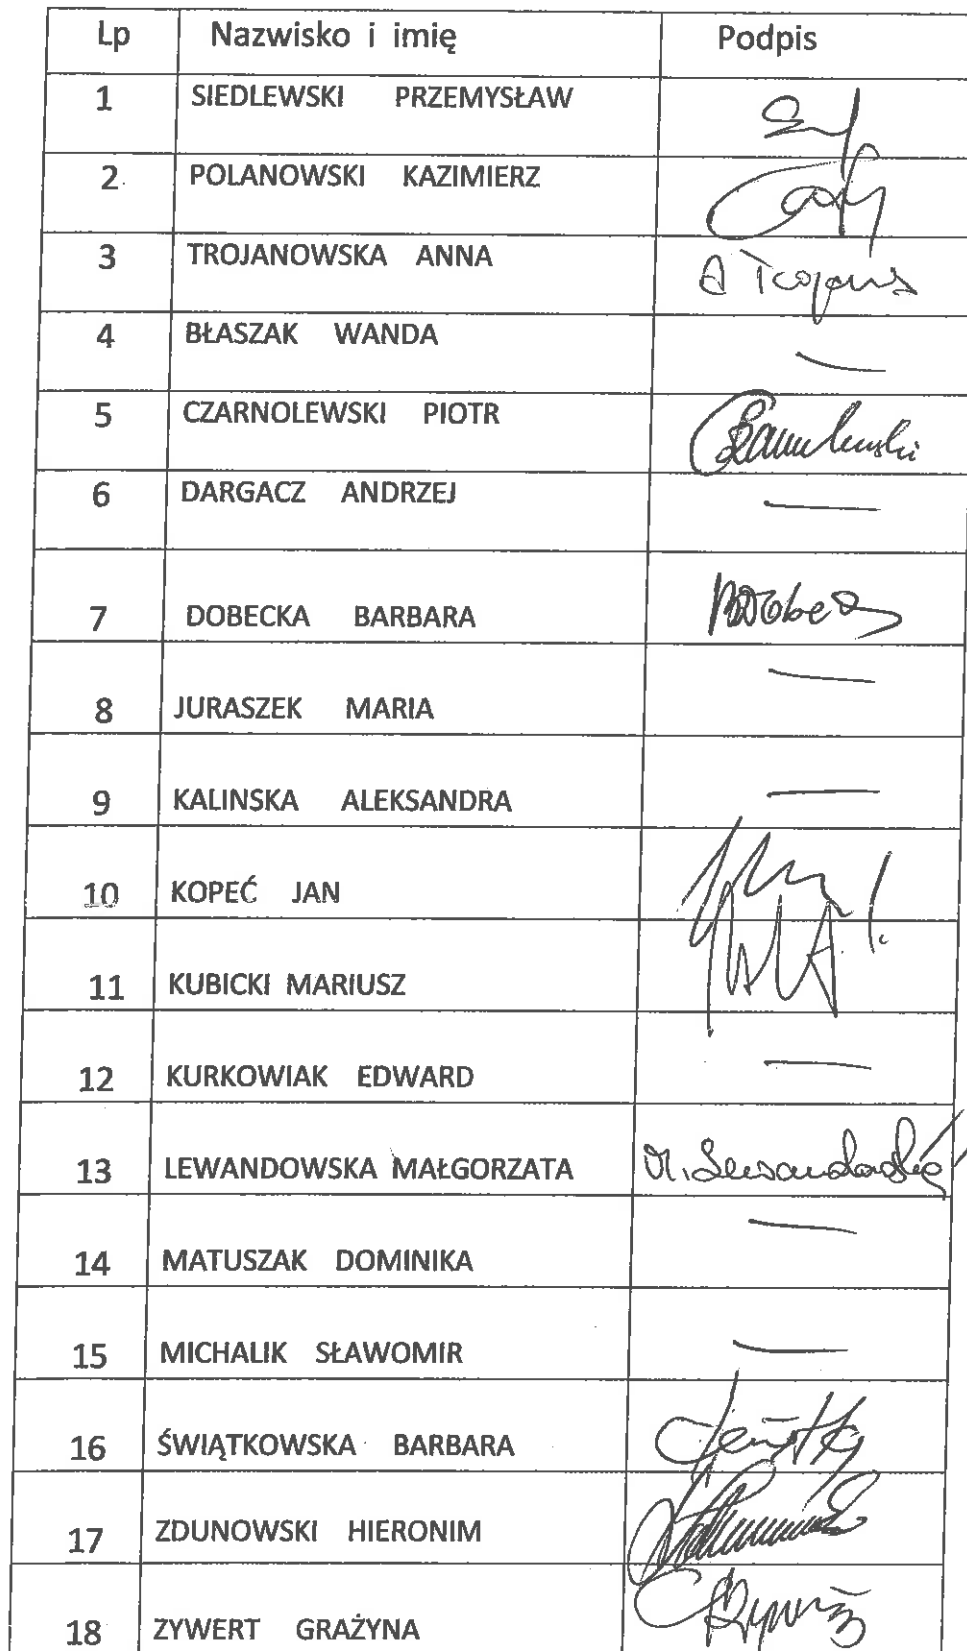 Lp Nazwisko i imię Podpis
1 SIEDLEWSKI PRZEMYSŁAW
2 POLANOWSKI KAZIMIERZ
3 TROJANOWSKA ANNA
4 BŁASZAK WANDA —
5 CZARNOLEWSKI PIOTR
6 DARGACZ ANDRZEJ —
7 DOBECKA BARBARA
8 JURASZEK MARIA —
9 KALINSKA ALEKSANDRA —
10 KOPEĆ JAN
11 KUBICKI MARIUSZ
12 KURKOWIAK EDWARD —
13 LEWANDOWSKA MAŁGORZATA M. Lewandowska
14 MATUSZAK DOMINIKA —
15 MICHALIK SŁAWOMIR —
16 ŚWIĄTKOWSKA BARBARA
17 ZDUNOWSKI HIERONIM
18 ZYWERT GRAŻYNA